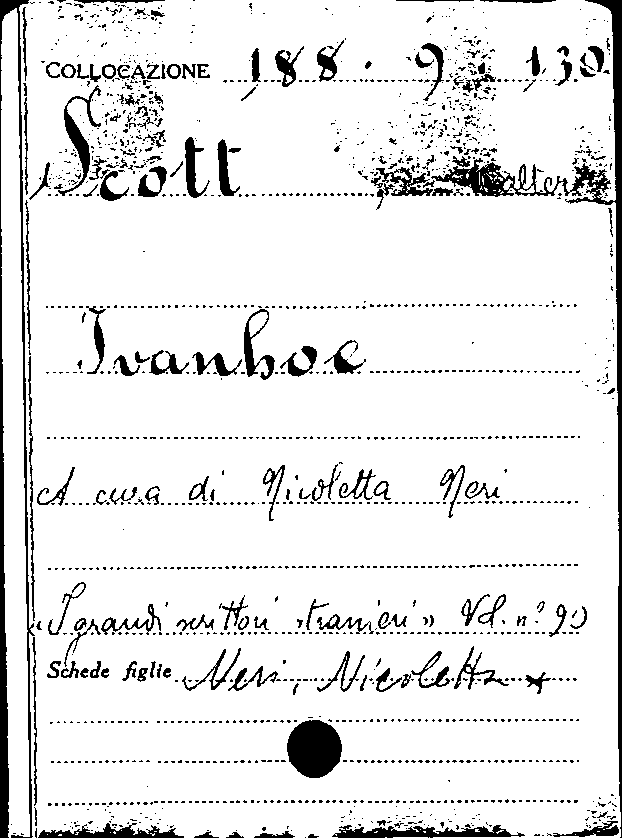 COLLOCAZIONE 188. 9. 130
Scott, Walter
Ivanhoe
A cura di Nicoletta Neri
«I grandi scrittori stranieri» Vol. n° 9)
Schede figlie Neri, Nicoletta *